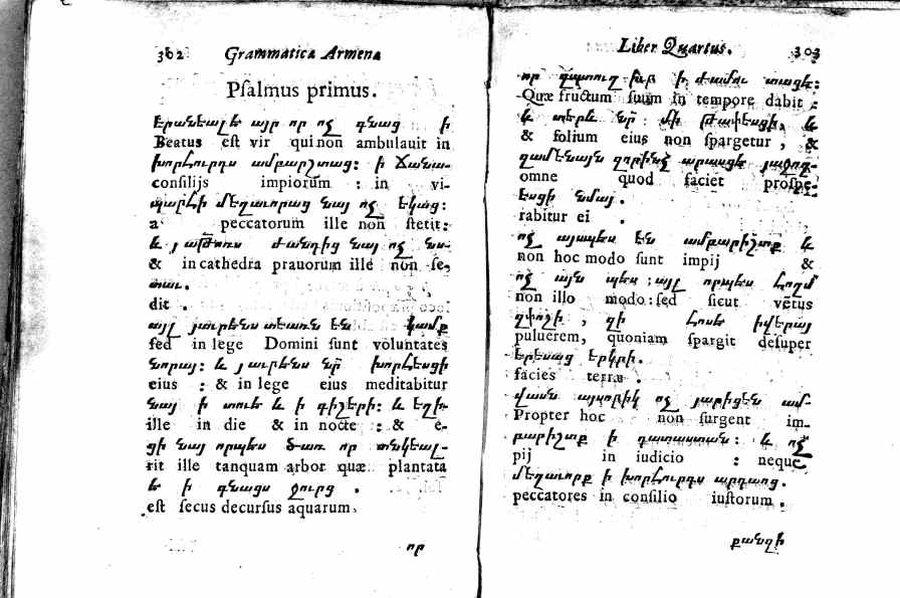 302 Grammatica Armena
Psalmus primus.
Երանեալէ այր որ ոչ գնաց ի
Beatus est vir qui non ambulauit in
խորհուրդս ամբարշտաց: ի ճանա-
consilijs impiorum : in vi-
պարհի մեղաւորաց նայ ոչ եկաց:
a peccatorum ille non stetit:
և յաթոռս ժանդից նայ ոչ նս-
& in cathedra prauorum ille non se-
տաւ.
dit .
այլ յաւրենս տեառն են կամք
sed in lege Domini sunt voluntates
նորայ: և յաւրենս նր խորհեսցի
eius : & in lege eius meditabitur
նայ ի տուե և ի գիշերի: և եղի-
ille in die & in nocte : & e-
ցի նայ որպես ծառ որ տնկեալ-
rit ille tanquam arbor quæ plantata
է ի գնացս ջուրց .
est secus decursus aquarum,
որ
Liber Quartus. 303
որ զպտուղ իւր ի ժամու տացէ:
Quæ fructum suum in tempore dabit :
և տերև նր մի թափեսցի, և
& folium eius non spargetur , &
զամենայն զորինչ արասցէ յաջող-
omne quod faciet prospe-
եսցի նմայ .
rabitur ei .
ոչ այսպես են ամբարիշտք և
non hoc modo sunt impij &
ոչ այն պես : այլ որպես հողմ
non illo modo : sed sicut vẽtus
զփոշի , զի հոսէ իվերայ
puluerem, quoniam spargit desuper
երեսաց երկրի.
facies terræ .
վասն այսորիկ ոչ յարիցեն ամ-
Propter hoc non surgent im-
բարիշտք ի դատաստան: և ոչ
pij in iudicio : neque
մեղաւորք ի խորհուրդս արդաոց.
peccatores in consilio iustorum .
քանզի